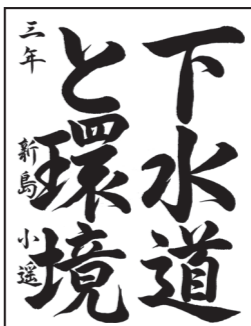 下水道
と環境
三年 新島 小遥